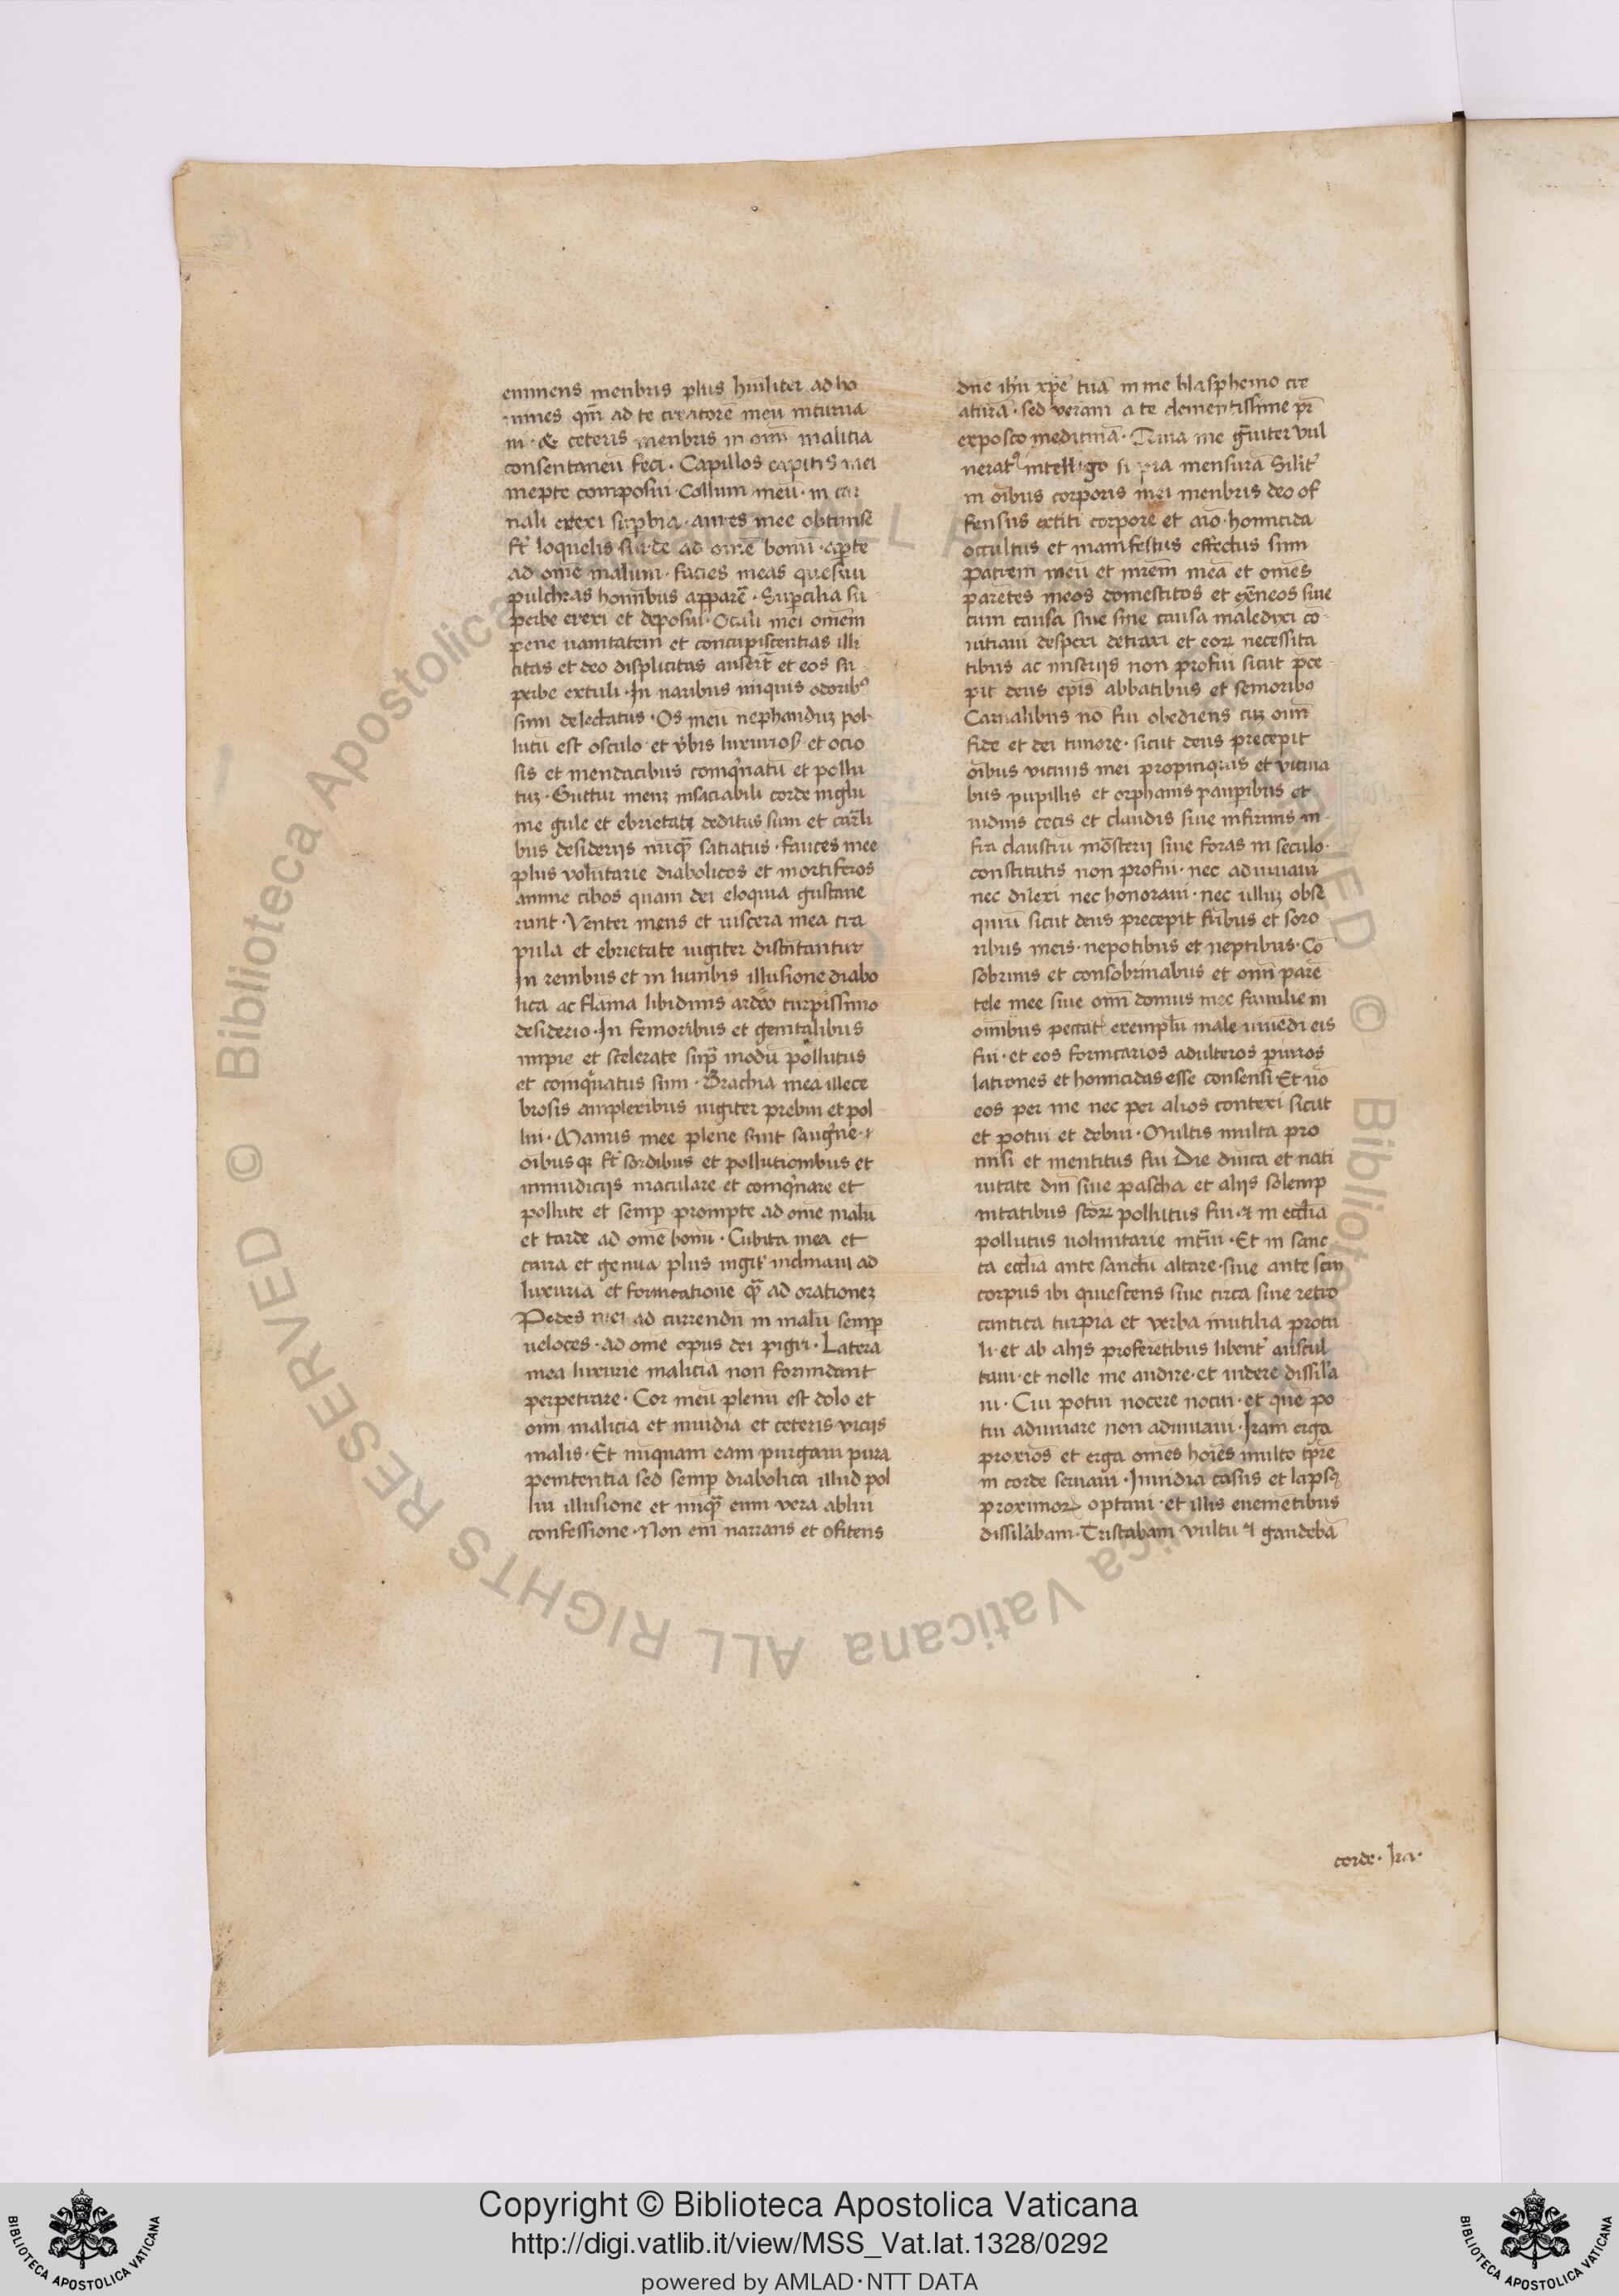 eminens menbris plus hūiliter ad ho
mines qm̄ ad te creatorē meū incurua
ui · & ceteris menbris in om̄i malicia
consentaneū feci · Capillos capitis mei
inepte composui · Collum meū · in car
nali erexi suꝑbia · aures mee obtuse
loquelis surde ad om̄e bonū · aꝑte
ad om̄e malum · facies meas quesiui
pulchras hominibus apparē · Suꝑcilia su
perbe erexi et deposui · Oculi mei om̄em
pene uanitatem et concupiscentias illi
citas et deo displicitas et eos su
perbe extuli · In naribus iniquis odoribꝰ
sum delectatus · Os meū nephanduꝫ pol
lutū est osculo et v̓bis luxurios̓ et ocio
sis et mendacibus coinq̓natū et pollu
tuꝫ · Guttur meuꝫ insaciabili corde inglu
uie gule et ebrietati deditus sum et car̄li
bus desiderijs nūq̄ satiatus · fauces mee
plus volūtarie diabolicos et mortiferos
anime cibos quam dei eloquia gustaue
runt · Venter meus et uiscera mea cra
pula et ebrietate iugiter distēntantur
In renibus et in lumbis illusione diabo
lica ac flāma libidinis ardeo turpissimo
desiderio · In femoribus et genitalibus
impie et scelerate sup̄ modū pollutus
et coinq̓natus sum · Brachia mea illece
brosis amplexibus iugiter prebui et pol
lui · Manus mee plene sunt saug̓ne ·
oībusqꝫ sordibus et pollutionibus et
inmūdicijs maculare et coinq̓nare et
pollute et semꝑ prompte ad om̄e malū
et tarde ad om̄e bonū · Cubita mea et
crura et genua plus iugit̓ inclinaui ad
luxuriā et fornicationē q̄ ad orationeꝫ
Pedes mei ad currendū in malū semꝑ
ueloces · ad om̄e opus dei pigri · Latera
mea luxurie maliciā non formidant
perpetrare · Cor meū plenū est dolo et
om̄i malicia et inuidia et ceteris vicijs
malis · Et nūquam eam purgaui pura
penitentia sed semꝑ diabolica illud pol
lui illusione et nūq̄ eum vera ablui
confessione · Non eni narrans et ꝯfitens
dn̄e ih̄u xp̄e tuā in me blasphemo cre
aturā · sed veram a te clementissime pr̄
exposco medicinā · Cuncta me gr̄uiter vul
neratꝰ intelligo supra mensurā Silit̓
in oībus corporis mei menbris deo of
fensus extiti corpore et aīo · homicida
occultus et manifestus effectus sum
patrem meū et mr̄em meā et om̄es
parētes meos domesticos et ext̄neos siue
cum causa siue sine causa maledixi cō
uitiaui despexi detraxi et eoꝝ necessita
tibus ac miserijs non profui sicut p̄ce
pit deus ep̄is abbatibus et senioribꝰ
Carnalibus nō fui obediens cuꝫ om̄i
fide et dei timore · sicut deus precepit
oībus vicinis mei propinquis et vicina
bus pupillis et orphanis pauꝑibus et
uiduis cecis et claudis siue infirmis in
fra claustrū mōsterij siue foras in seculo ·
constitutis non profui · nec adiuuaui
nec dilexi nec honoraui · nec ulluꝫ obse
quiū sicut deus precepit fr̄ibus et soro
ribus meis · nepotibus et neptibus · Cō
sobrinis et consobrinabus et om̄i parē
tele mee siue om̄i domus mee familie in
om̄ibus peccatꝭ exemplū male uiuēdi eis
fui · et eos fornicarios adulteros piuros
latrones et homicidas esse consensi Et nō
eos per me nec per alios correxi sicut
et potui et debui · Multis multa pro
misi et mentitus fui Die dn̄ica et nati
uitate dn̄i siue pascha et alijs solemp
nitatibus sc̄oꝝ pollutus fui · & in eccl̄ia
pollutus uoluntarie int̄ui · Et in sanc
ta eccl̄ia ante sanctū altare · siue ante sc̄m
corpus ibi quiescens siue circa siue retro
cantica turpia et verba inutilia protu
li · et ab alijs proferētibus libent̓ auscul
taui · et nolle me audire · et uidere dissil̄a
ui · Cui potui nocere nocui · et quē po
tui adiuuare non adiuuaui · Iram erga
proxīos et erga om̄es hoīes multo tp̄re
in corde seruaui · Inuidia casus et lapsꝰ
proximoꝝ optaui · et illis euenientibus
dissil̄abam · Tristabam vultu & gaudebā
corde · Ira ·
Copyright © Biblioteca Apostolica Vaticana
http://digi.vatlib.it/view/MSS_Vat.lat.1328/0292
powered by AMLAD·NTT DATA
BIBLIOTECA APOSTOLICA VATICANA
BIBLIOTECA APOSTOLICA VATICANA
© Biblioteca Apostolica Vaticana ALL RIGHTS RESERVED